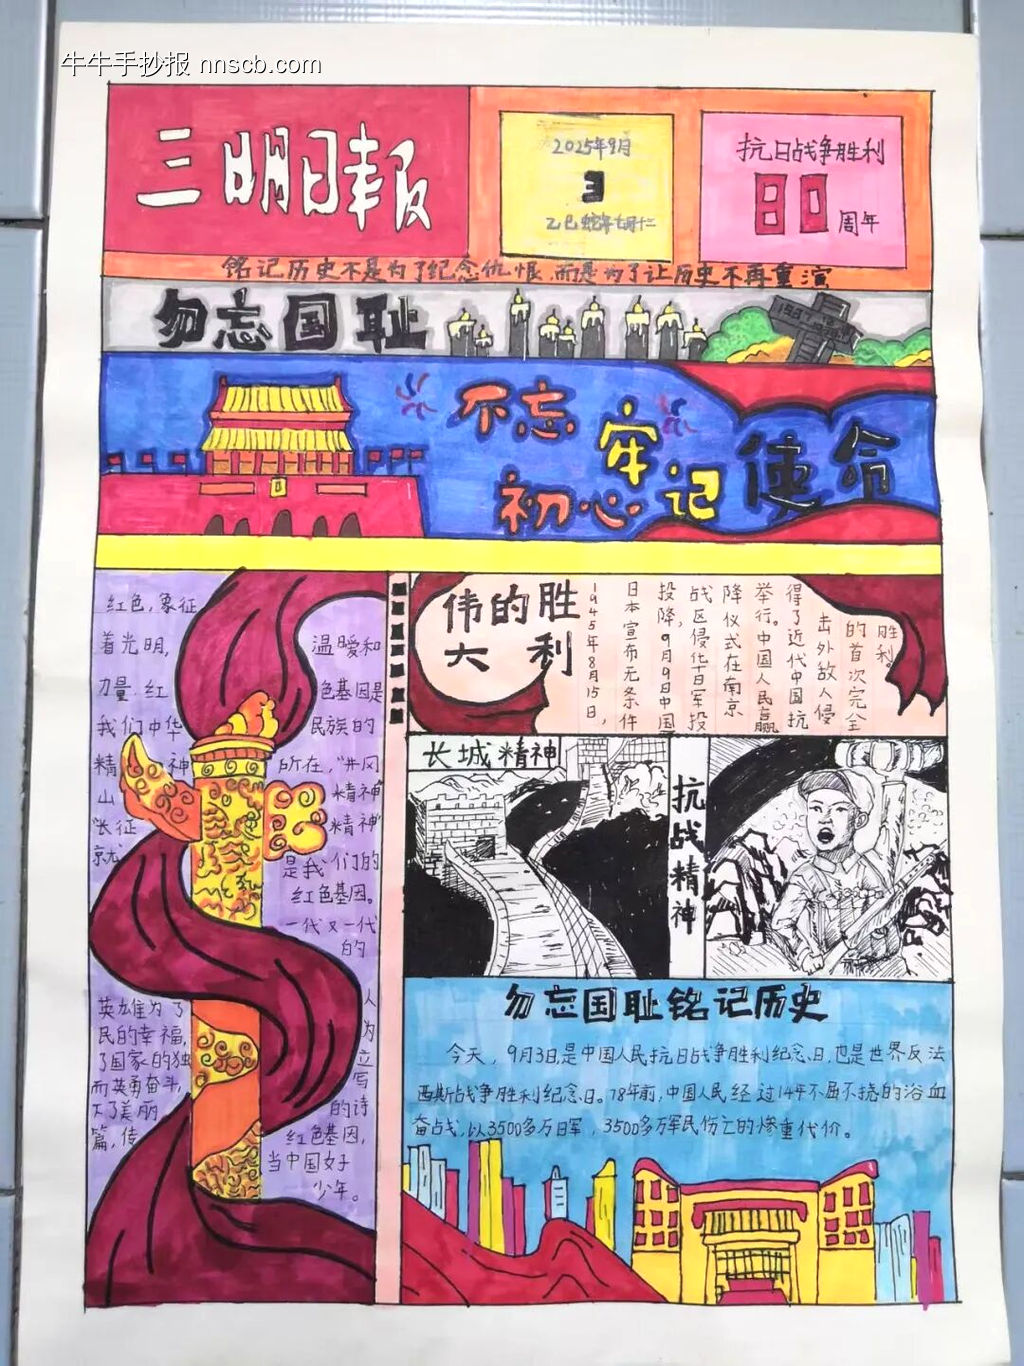 牛牛手抄报 nnscb.com
三明日报
2025年9月
3
乙巳蛇年七月十二
抗日战争胜利
80周年
铭记历史不是为了纪念仇恨,而是为了让历史不再重演
勿忘国耻
不忘
初心
牢记
使命
红色,象征
着光明,温暖和
力量.红色基因是
我们中华民族的
精神所在,“井冈
山精神”
“长征精神”
就是我们的
红色基因。
一代又一代
的
英雄为了人
民的幸福,为
了国家的独立
而英勇奋斗,写
下了美丽的诗
篇,传红色基因,
当中国好
少年。
伟大的胜利
1945年8月15日,
日本宣布无条件
投降,9月9日中国
战区侵华日军投
降仪式在南京
举行。中国人民赢
得了近代中国抗
击外敌人侵
的首次完全
胜利。
长城精神
抗战精神
勿忘国耻铭记历史
今天,9月3日,是中国人民抗日战争胜利纪念日,也是世界反法
西斯战争胜利纪念日。78年前,中国人民经过14年不屈不挠的浴血
奋战,以3500多万日军,3500多万军民伤亡的惨重代价。